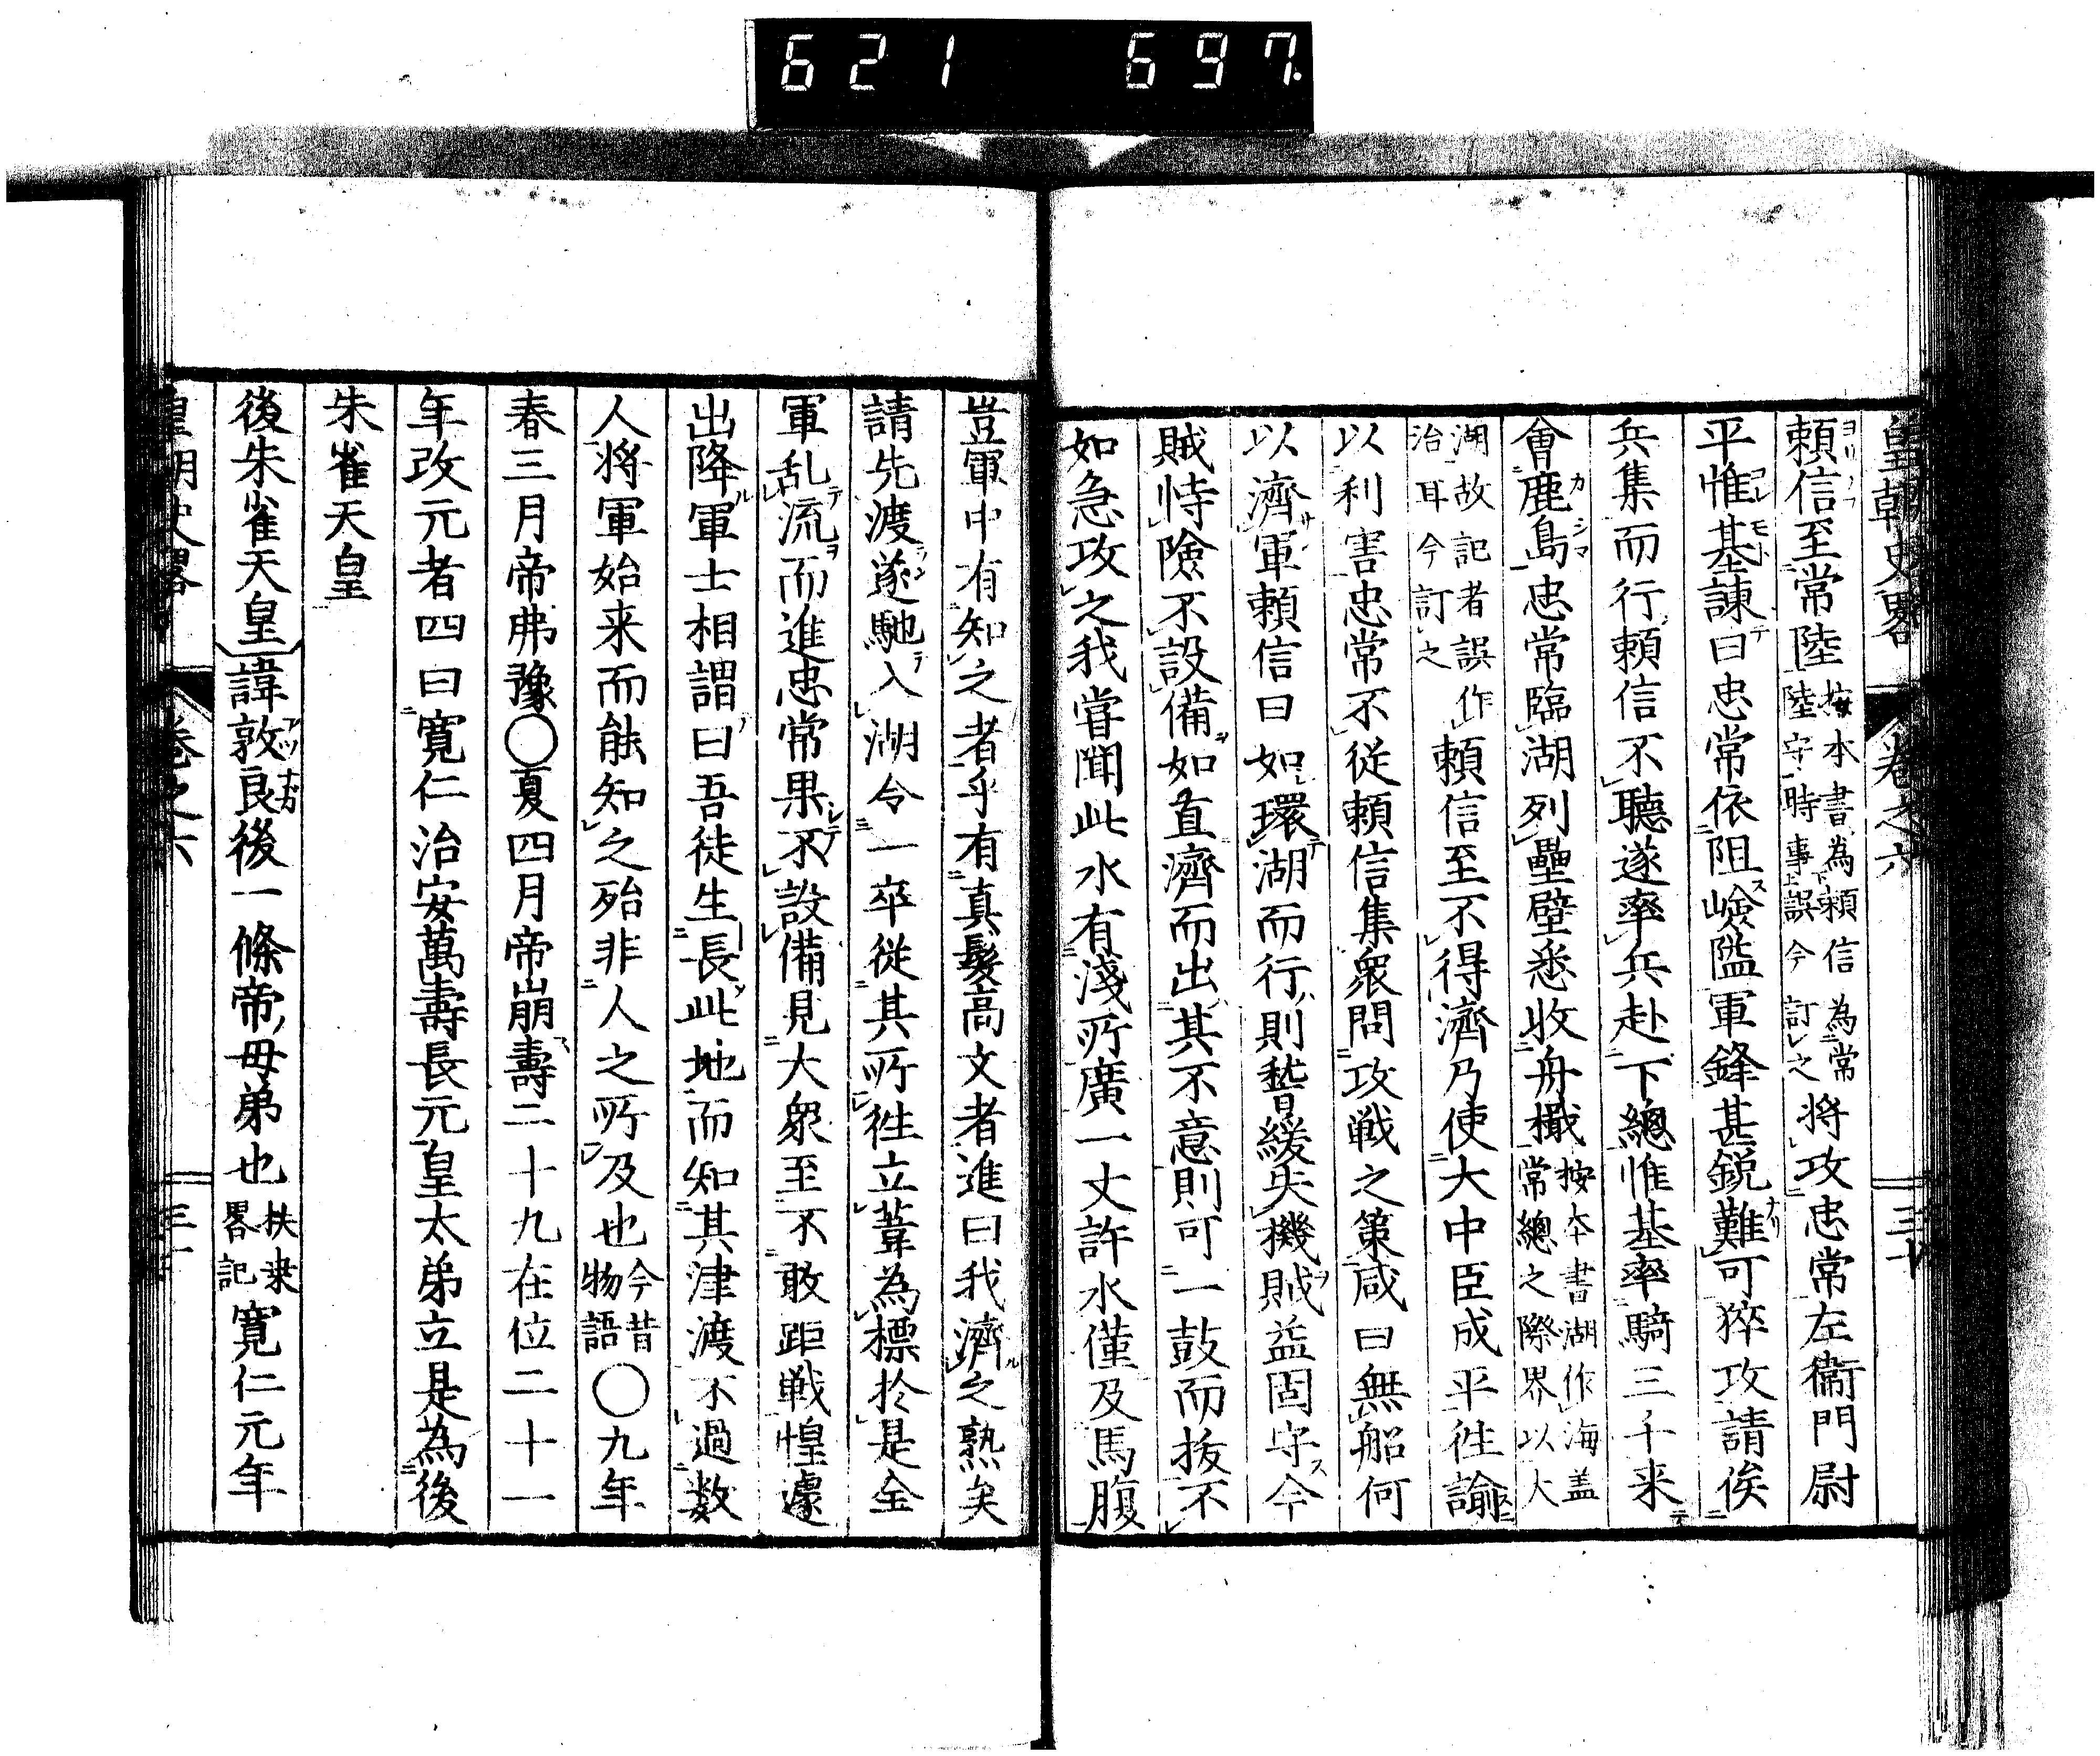 621 697
皇朝史畧 卷之六 三十
頼信至常陸按本書為頼信為常陸守時事誤今訂之将攻忠常左衞門尉
平惟基諌曰忠常依阻嶮隘軍鋒甚鋭難可猝攻請俟
兵集而行頼信不聴遂率兵赴下總惟基率騎三千来
會鹿島忠常臨湖列壘壁悉收舟檝按本書湖作海盖常總之際界以大
湖故記者誤作治耳今訂之頼信至不得濟乃使大中臣成平徃諭
以利害忠常不従頼信集衆問攻戦之策咸曰無船何
以濟軍頼信曰如環湖而行則暫緩失機賊益固守今
賊恃険不設備如直濟而出其不意則可一鼓而抜不
如急攻之我嘗聞此水有淺所廣一丈許水僅及馬腹
豈軍中有知之者乎有真髮高文者進曰我濟之熟矣
請先渡遂馳入湖令一卒従其所徃立葦為標於是全
軍乱流而進忠常果不設備見大衆至不敢距戦惶遽
出降軍士相謂曰吾徒生長此地而知其津渡不過数
人将軍始来而能知之殆非人之所及也今昔物語〇九年
春三月帝弗豫〇夏四月帝崩壽二十九在位二十一
年改元者四曰寛仁治安萬壽長元皇太弟立是為後
朱雀天皇
後朱雀天皇諱敦良後一條帝母弟也扶桒畧記寛仁元年
皇朝史畧 卷之六 三十